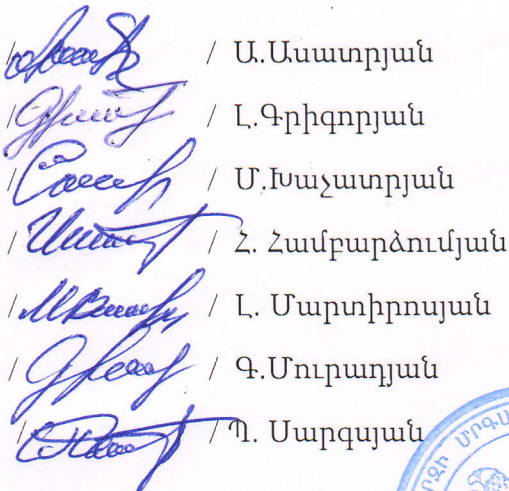 / / Ա.Ասատրյան
/ / Լ.Գրիգորյան
/ / Մ.Խաչատրյան
/ / Հ. Համբարձումյան
/ / Լ. Մարտիրոսյան
/ / Գ.Մուրադյան
/ / Պ. Սարգսյան